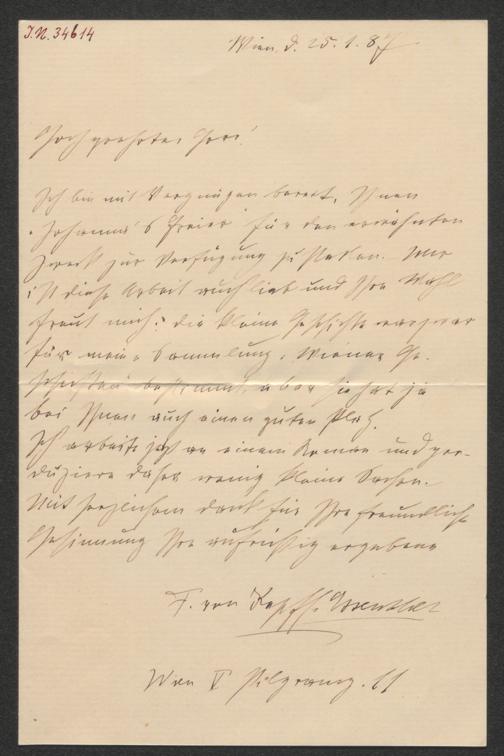 J.N. 34614
Wien, d. 25. 1. 87
Hochgeehrter Herr!
Ich bin mit Vergnügen bereit, Ihnen
"Johanna's Freier" für den erwähnten
Zweck zur Verfügung zu stellen. Mir
ist diese Arbeit auch lieb und Ihre Wahl
freut mich: die kleine Geschichte war zwar
für meine Sammlung "Wiener Ge-
schichten" bestimmt, aber sie hat ja
bei Ihnen auch einen guten Platz.
Ich arbeite jetzt an einem Roman und pro-
duziere daher wenig kleine Sachen.
Mit herzlichem Dank für Ihre freundliche
Gesinnung Ihre aufrichtig ergebene
F. von Kapff-Essenther
Wien V Pilgramg. 11